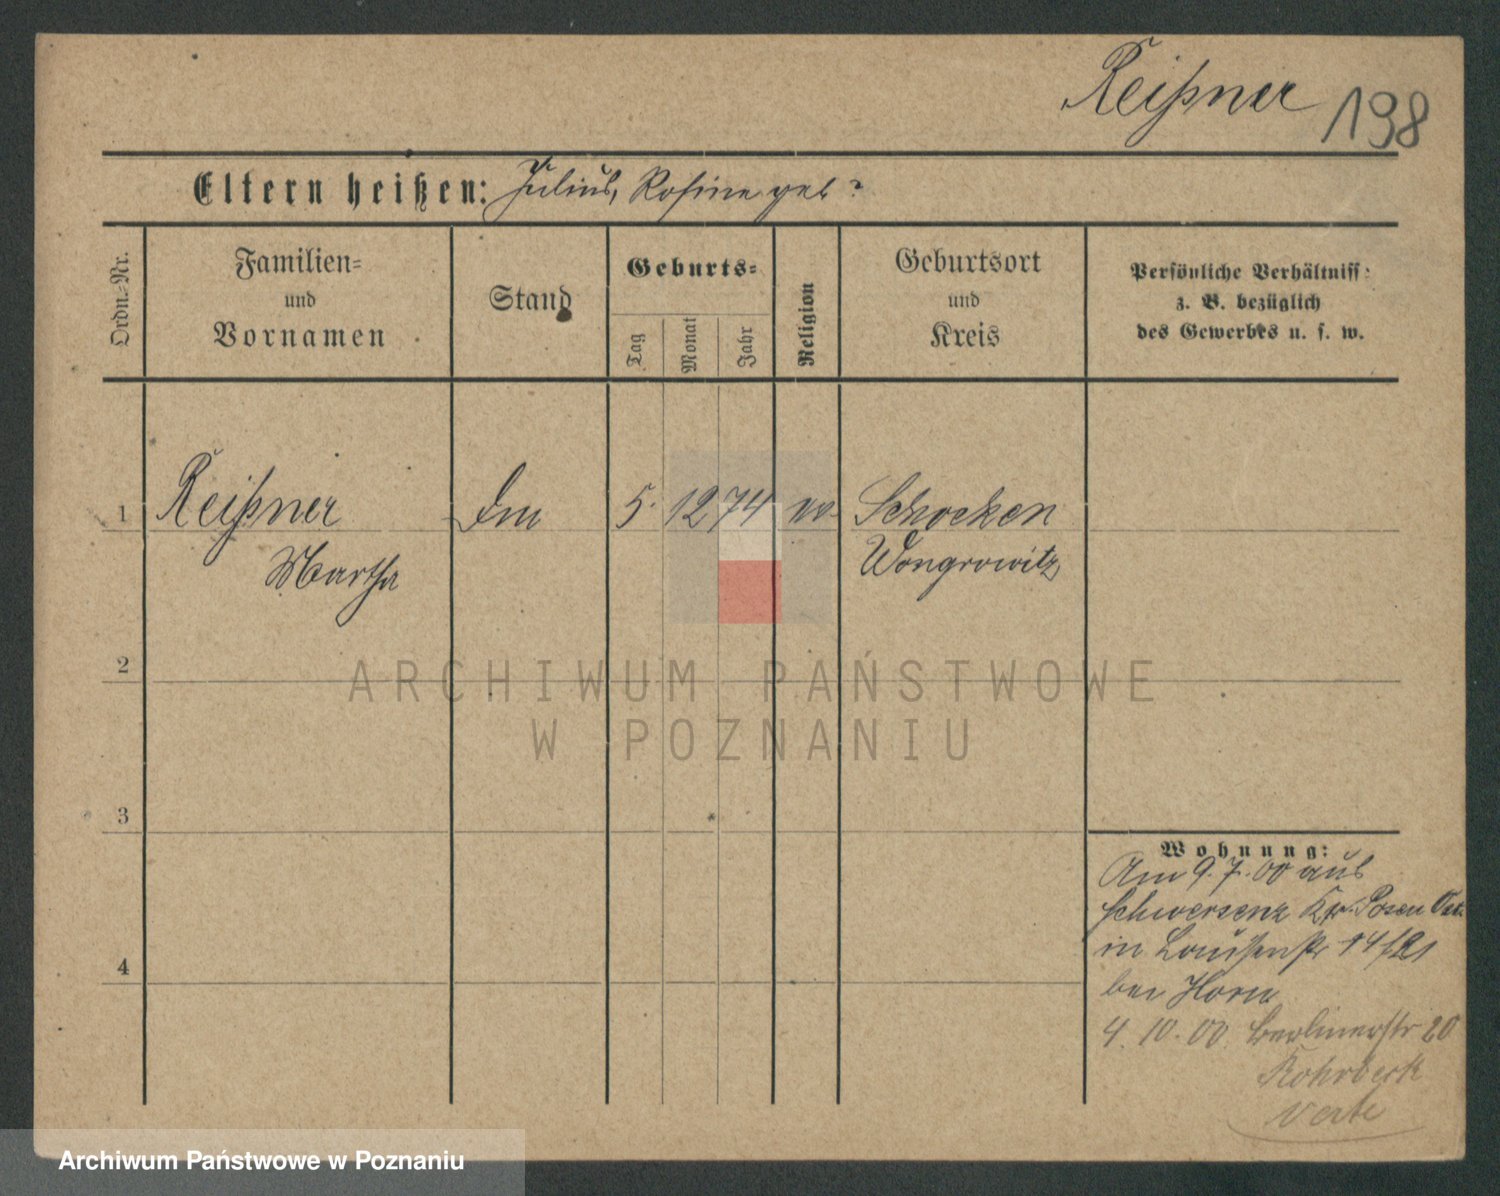 Reißner 198
Eltern heißen: Julius, Rosine geb ?
Ordn.-Nr.
Familien-
und
Vornamen
Stand
Geburts-
Tag
Monat
Jahr
Religion
Geburtsort
und
Kreis
Persönliche Verhältniss:
z. B. bezüglich
des Gewerbes u. s. w.
1 Reißner 5. 12 74 ev. Schocken
Martha Wongrowitz
2
ARCHIWUM PAŃSTWOWE
W POZNANIU
3
4
Wohnung:
Am 9. 7. 00 aus
Schwersenz Kr. Posen Ost.
in Louisenstr 14
bei Horn
4. 10. 00 Berlinerstr 20
Rohrbeck
Verte
Archiwum Państwowe w Poznaniu